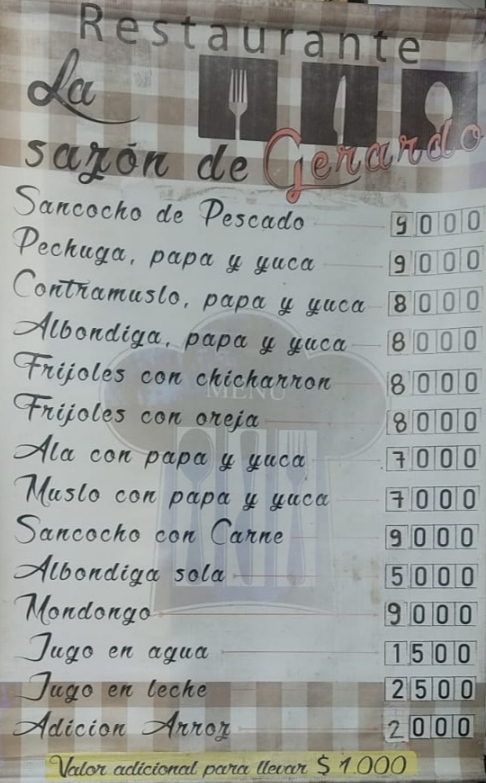 Restaurante
La
sazón de Gerardo
Sancocho de Pescado 9000
Pechuga, papa y yuca 9000
Contramuslo, papa y yuca 8000
Albondiga, papa y yuca 8000
Frijoles con chicharron 8000
MENU
Frijoles con oreja 8000
Ala con papa y yuca 7000
Muslo con papa y yuca 7000
Sancocho con Carne 9000
Albondiga sola 5000
Mondongo 9000
Jugo en agua 1500
Jugo en leche 2500
Adicion Arroz 2000
Valor adicional para llevar $ 1.000